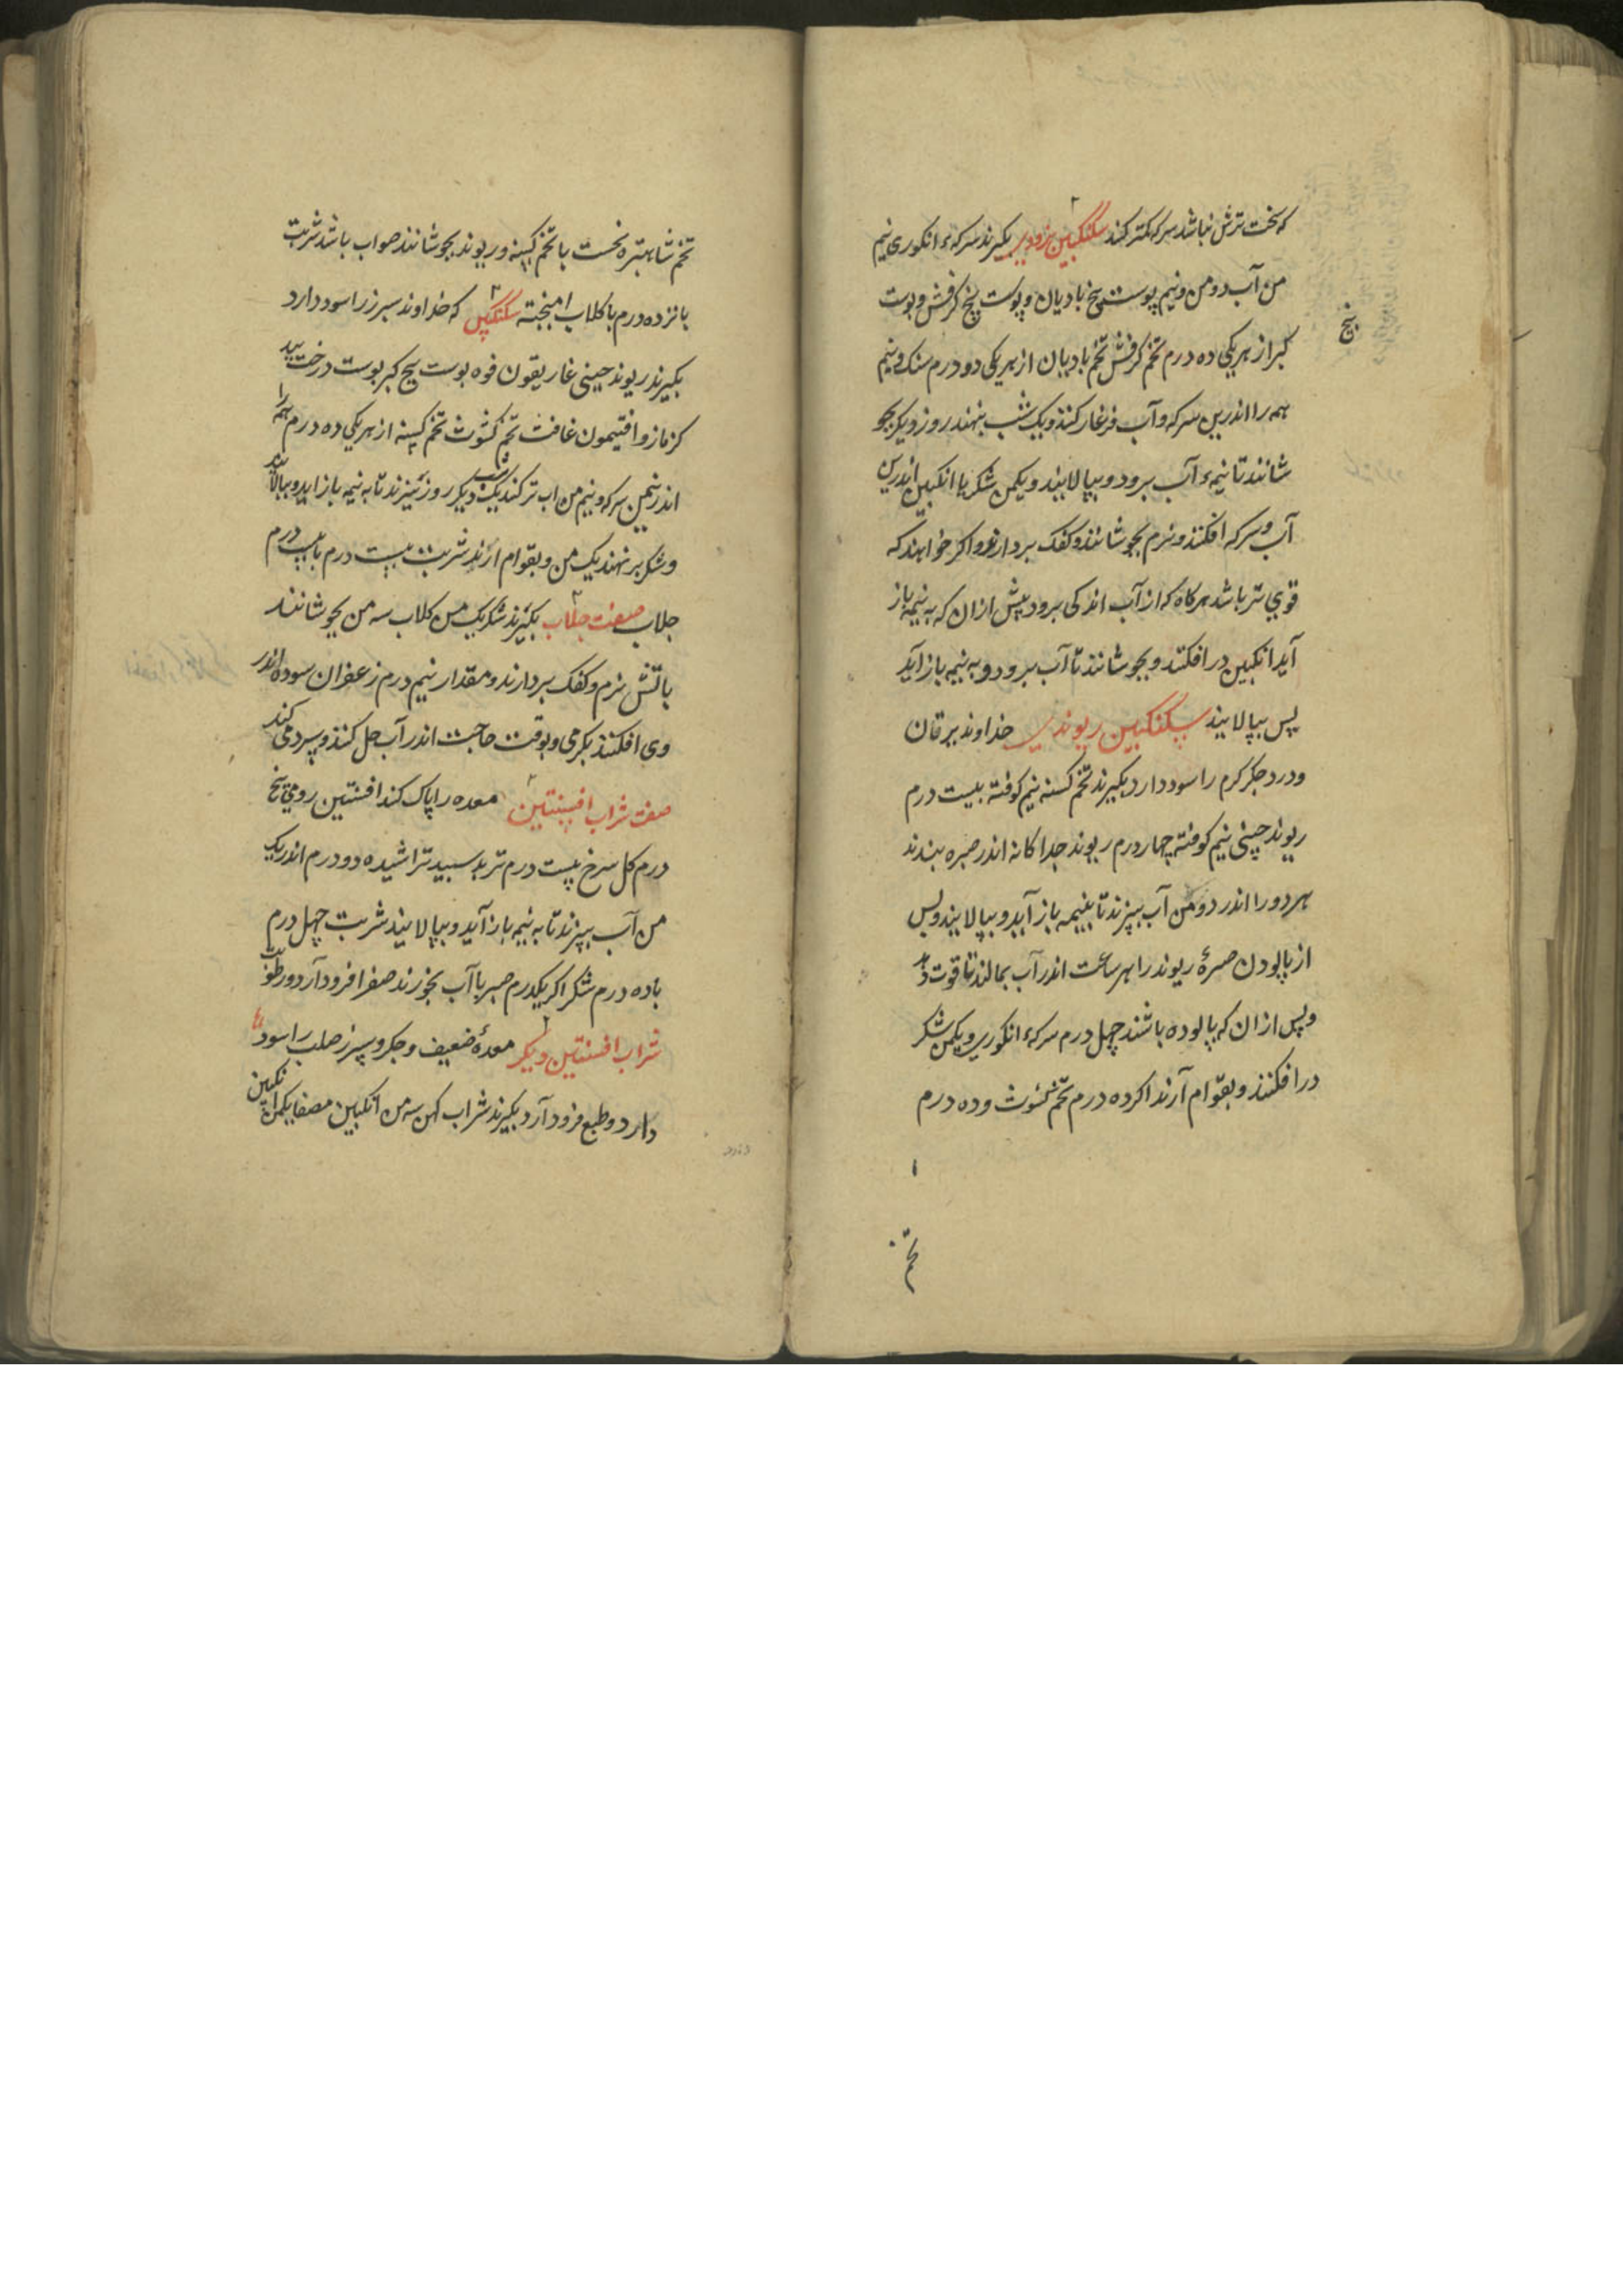 که سخت ترش نباشد سرکه کمتر کنند سکنگبین بزوری بکیرند سرکهٔ انکوری نیم
من آب دو من و نیم پوست بیخ بادیان و پوست بیخ کرفش و پوست
بیخ
کبر از هریکی ده درم تخم کرفش تخم بادیان از هریکی دو درم سنک و نیم
همه را اندرین سرکه و آب فرغار کنند و یک شب بنهند روز دیکر بجو
شانند تا نیمهٔ آب برود و بپالایند و یکمن شکر یا انکبین اندرین
آب و سرکه افکنند و نرم بجوشانند و کفک بردارند و اکر خواهند که
قوي تر باشد هرکاه که از آب اندکی برود پیش ازان که به نیمه باز
آید انکبین درافکنند و بجوشانند تا آب برود و به نیمه باز آید
پس بپالایند سکنکبین ریوندی خداوند یرقان
و درد جکر کرم را سود دارد بکیرند تخم کسنه نیم کوفته بیست درم
ریوند چینی نیم کوفته چهار درم ریوند جداکانه اندر صره بندند
هر دو را اندر دو من آب بپزند تا بنیمه باز آید و بپالایند و پس
از پالودن صرهٔ ریوند را هر ساعت اندر آب بمالند تا قوت
و پس ازان که پالوده باشند چهل درم سرکهٔ انکوری و یکمن شکر
درافکنند و بقوام آرند اکر ده درم تخم کثوث و ده درم
تخم
تخم شاهتره نخست با تخم کسنه و ریوند بجوشانند صواب باشد شربت
پانزده درم با کلاب امیخته سکنکبین که خداوند سپرز را سود دارد
بکیرند ریوند چینی غاریقون فوه پوست بیخ کبر پوست درخت بید
کزمازو افتیمون غافت تخم کثوث تخم کسنه از هریکی ده درم همه را
اندر نیم من سرکه و نیم من اب تر کنند یک شب دیکر روز بپزند تا به نیمه باز اید و بپالایند
و شکر برنهند یک من و بقوام ارند شربت بیست درم با بیست درم
جلاب صفت جلاب بکیرند شکر یک من کلاب سه من بجوشانند
باتش نرم و کفک بردارند و مقدار نیم درم زعفران سوده اندر
وی افکنند بکرمی و بوقت حاجت اندر آب حل کنند و بسردمی کند
صفت شراب افسنتین معده را پاک کند افسنتین رومی پنج
درم کل سرخ بیست درم تربد سپید تراشیده دو درم اندر یک
من آب بپزند تا به نیمه باز آید و بپالایند شربت چهل درم
با ده درم شکر اکر یکدرم صبر با آب بخورند صفرا فرود آرد و رطوبت
شراب افسنتین دیکر معدهٔ ضعیف و جکر و سپرز صلب را سود
دارد و طبع فرود آرد بکیرند شراب کهن سه من انکبین مصفا یکمن